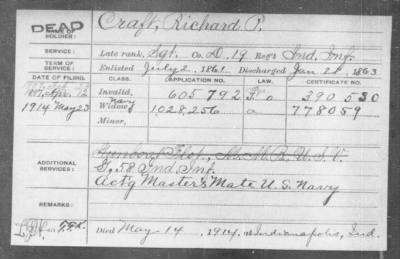 DEAD
NAME OF SOLDIER: Craft, Richard P.
SERVICE: Late rank, Sgt. Co. D, 19 Reg't Ind. Inf.
TERM OF SERVICE: Enlisted July 2, 1861 Discharged Jan 21, 1863
DATE OF FILING. CLASS. APPLICATION NO. LAW. CERTIFICATE NO.
Invalid, 605792 390530
1914 May 23 Navy Widow, 1,028,256 a 778059
Minor,
ADDITIONAL SERVICES:
G, 58 Ind. Inf.
Act'g Master's Mate U.S. Navy
REMARKS:
Died May 14, 1914, at Indianapolis, Ind.